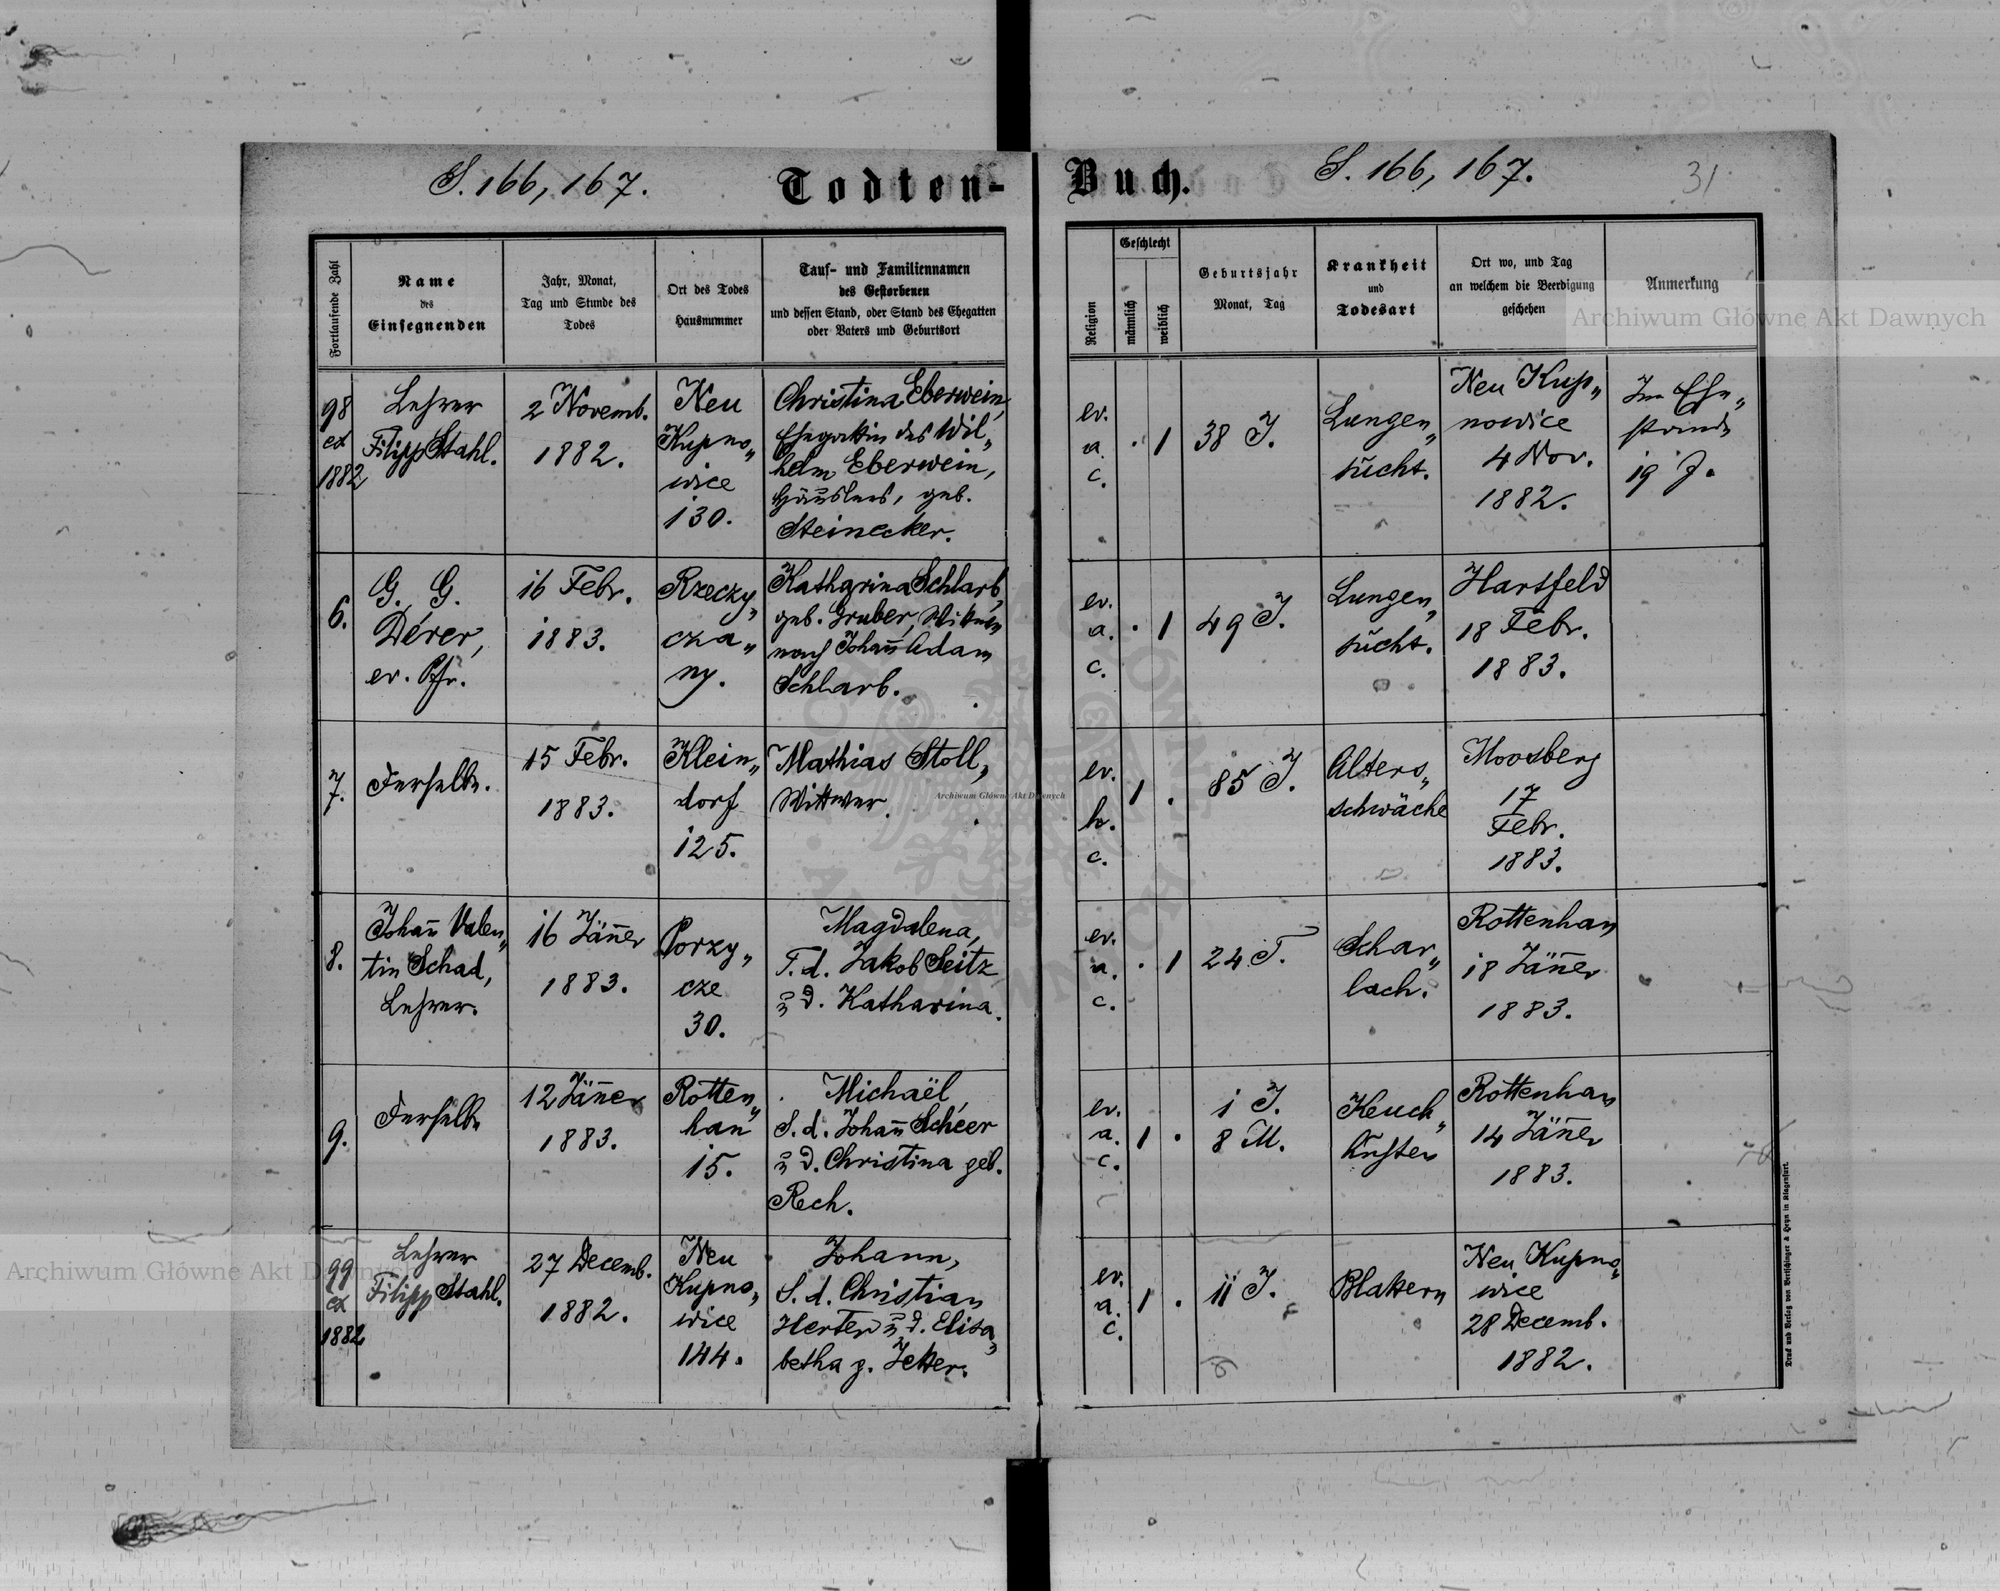 S. 166, 167.
Todten-
Buch.
S. 166, 167.
31
Fortlaufende Zahl
Name
des
Einsegnenden
Jahr, Monat,
Tag und Stunde des
Todes
Ort des Todes
Hausnummer
Tauf- und Familiennamen
des Gestorbenen
und dessen Stand, oder Stand des Ehegatten
oder Vaters und Geburtsort
Religion
Geschlecht
männlich
weiblich
Geburtsjahr
Monat, Tag
Krankheit
und
Todesart
Ort wo, und Tag
an welchem die Beerdigung
geschehen
Anmerkung
98
ex
1882
Lehrer
Filipp Stahl.
2 Novemb.
1882.
Neu
Kupno„
wice
130.
Christina Eberwein,
Ehegattin des Wil„
helm Eberwein,
Häuslers, geb.
Steinecker.
ev.
a.
c.
. 1
38 J.
Lungen„
sucht.
Neu Kup„
nowice
4 Nov.
1882.
Im Ehe„
stande
19 J.
6.
G. G.
Dérer,
ev. Pfr.
16 Febr.
1883.
Rzeczy„
cza„
ny.
Katharina Schlarb,
geb. Gruber, Witwe
nach Johan̄ Adam
Schlarb.
ev.
a.
c.
. 1
49 J.
Lungen„
sucht.
Hartfeld
18 Febr.
1883.
7.
Derselbe.
15 Febr.
1883.
Klein„
dorf
125.
Mathias Stoll,
Wittwer.
ev.
h.
c.
1 .
85 J.
Alters„
schwäche
Moosberg
17
Febr.
1883.
8.
Johan̄ Valen„
tin Schad,
Lehrer.
16 Jän̄er
1883.
Porzy„
cze
30.
Magdalena,
T. d. Jakob Seitz
u. d. Katharina.
ev.
a.
c.
. 1
24 T.
Schar„
lach.
Rottenhan
18 Jän̄er
1883.
9.
Derselbe
12 Jän̄er
1883.
Rotten„
han
15.
Michaël,
S. d. Johan̄ Scheer
u. d. Christina geb.
Rech.
ev.
a.
c.
1 .
1 J.
8 M.
Keuch„
husten
Rottenhan
14 Jän̄er
1883.
99
ex
1882
Lehrer
Filipp Stahl.
27 Decemb.
1882.
Neu
Kupno„
wice
144.
Johann,
S. d. Christian
Herter u. d. Elisa„
betha g. Jetter.
ev.
a.
c.
1 .
11 J.
Blattern
Neu Kupno„
wice
28 Decemb.
1882.
Druck und Verlag von Bertschinger & Heyn in Klagenfurt.
Archiwum Główne Akt Dawnych
Archiwum Główne Akt Dawnych
Archiwum Główne Akt Dawnych